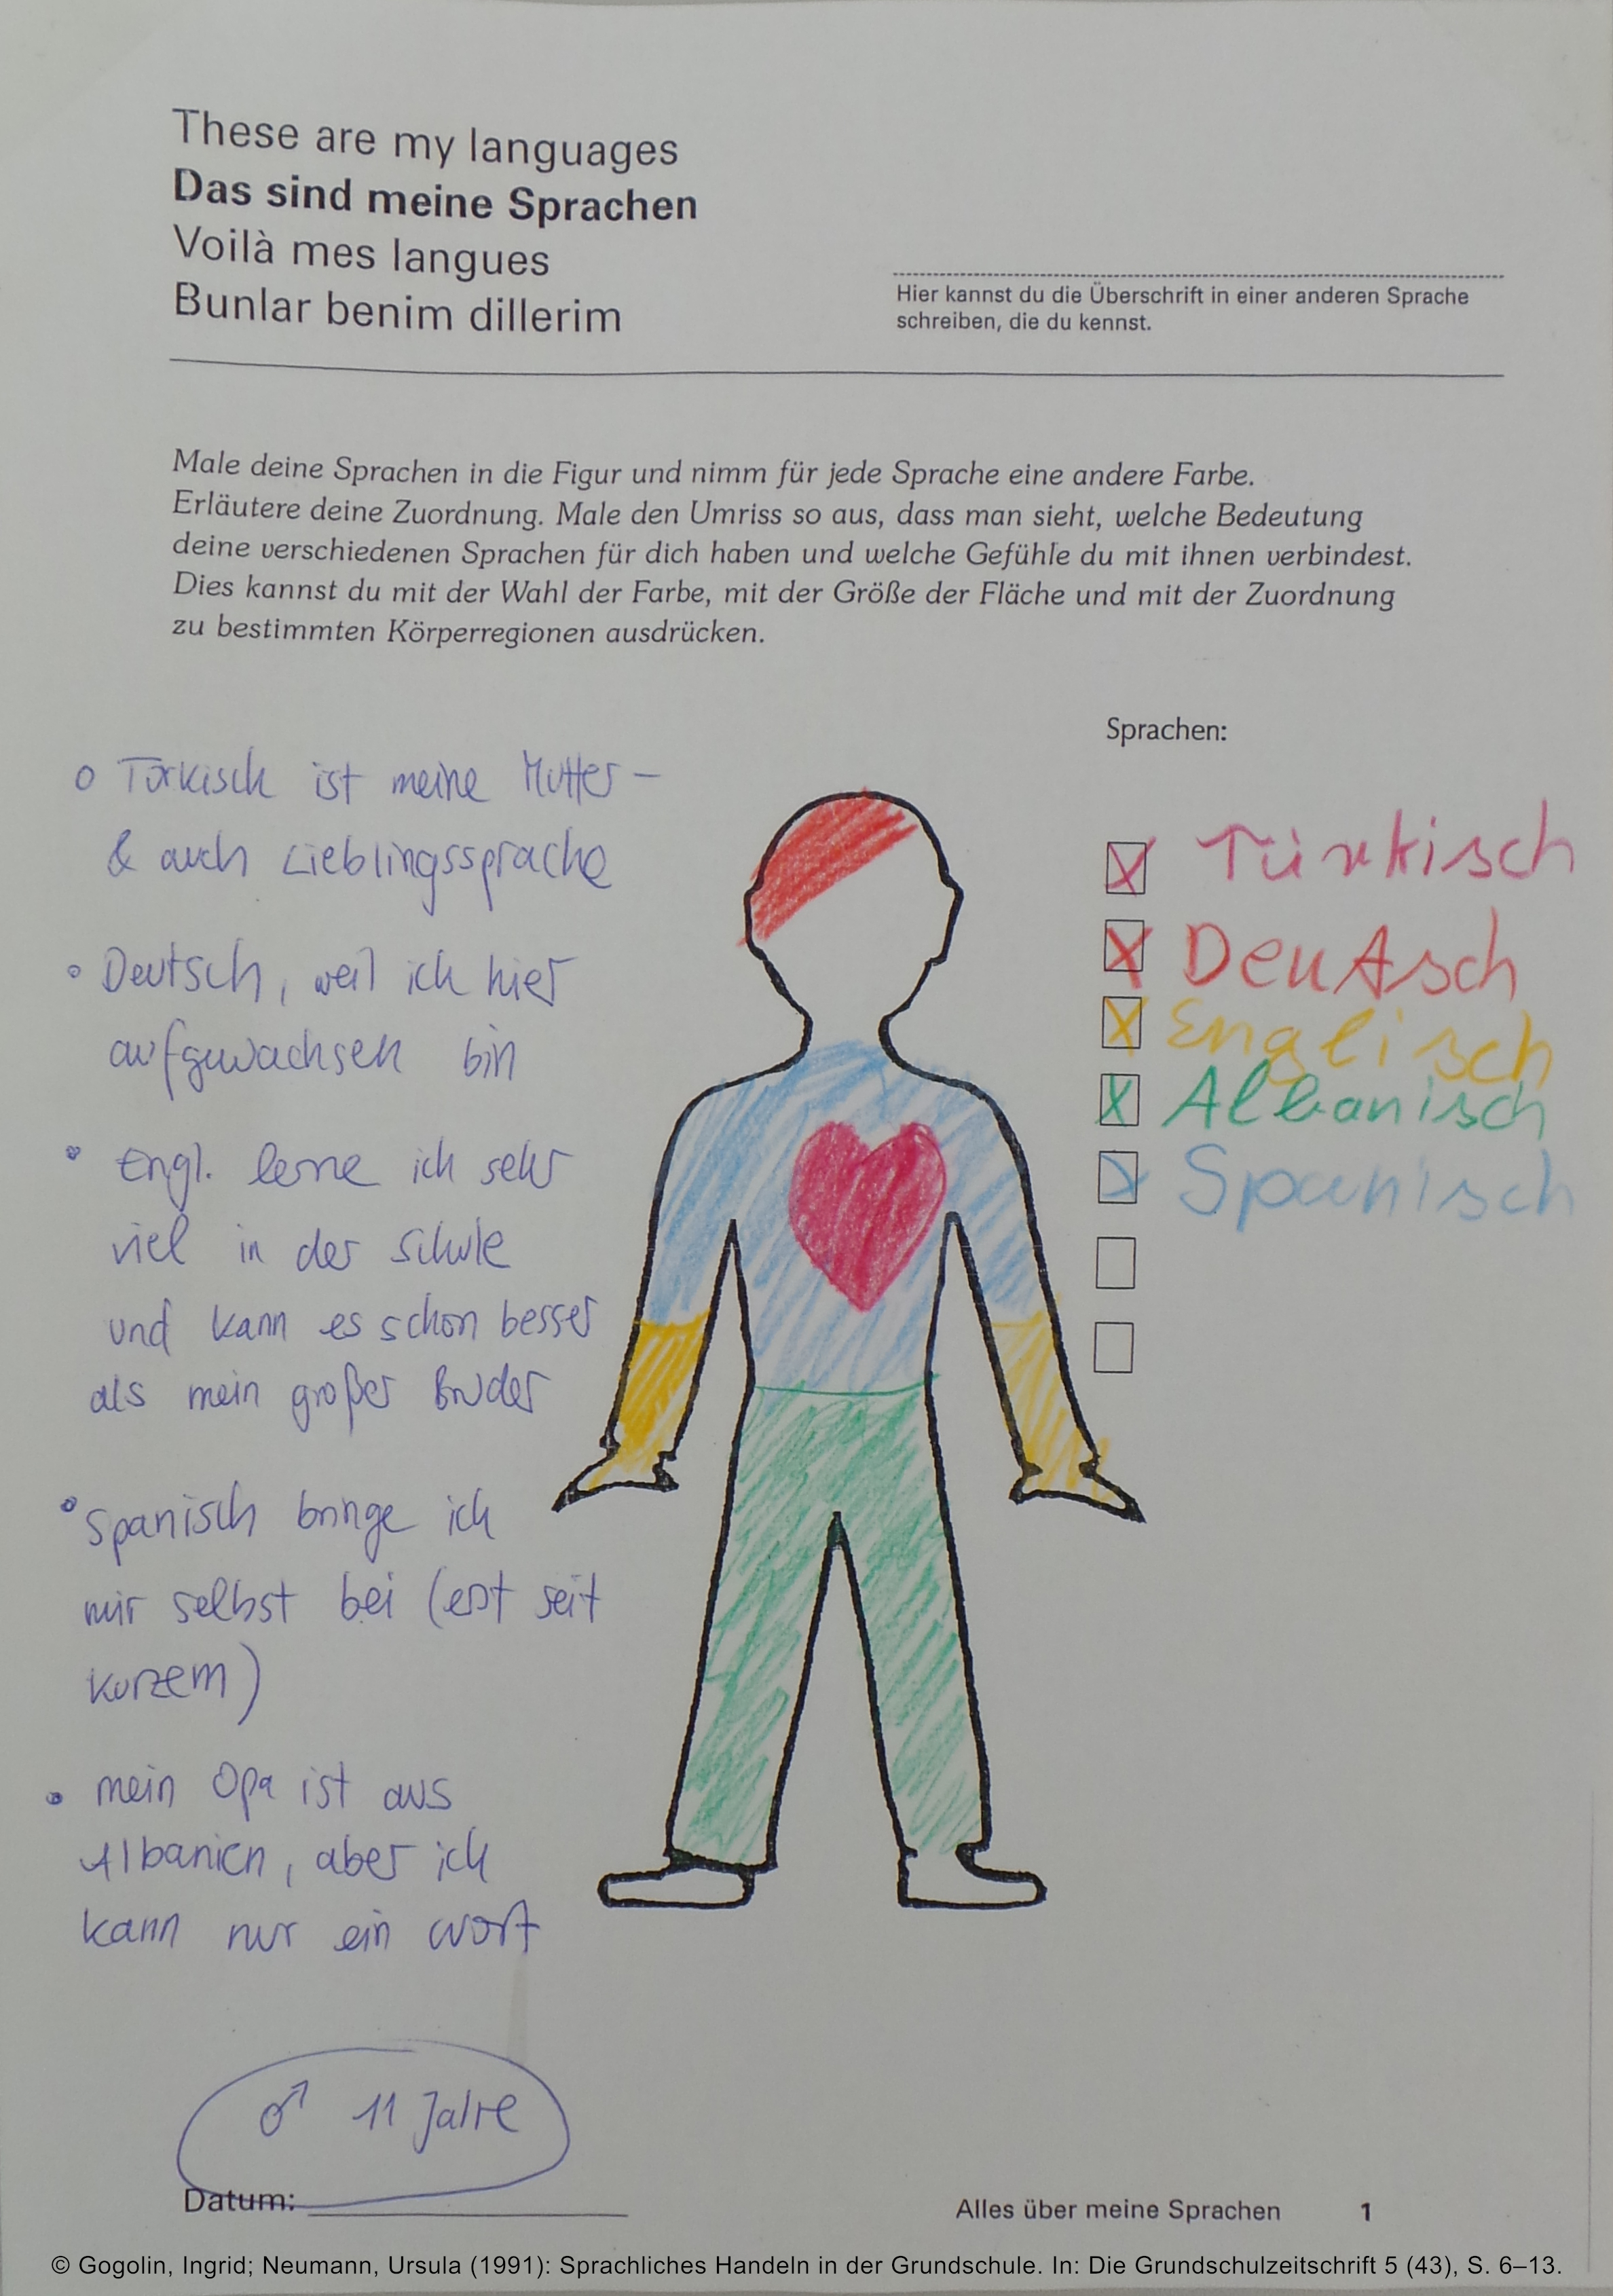 These are my languages
Das sind meine Sprachen
Voilà mes langues
Bunlar benim dillerim
Hier kannst du die Überschrift in einer anderen Sprache
schreiben, die du kennst.
Male deine Sprachen in die Figur und nimm für jede Sprache eine andere Farbe.
Erläutere deine Zuordnung. Male den Umriss so aus, dass man sieht, welche Bedeutung
deine verschiedenen Sprachen für dich haben und welche Gefühle du mit ihnen verbindest.
Dies kannst du mit der Wahl der Farbe, mit der Größe der Fläche und mit der Zuordnung
zu bestimmten Körperregionen ausdrücken.
Türkisch ist meine Mutter-
& auch Lieblingssprache
Deutsch, weil ich hier
aufgewachsen bin
Engl. lerne ich sehr
viel in der Schule
und kann es schon besser
als mein großer Bruder
Spanisch bringe ich
mir selbst bei (erst seit
kurzem)
mein Opa ist aus
Albanien, aber ich
kann nur ein Wort
Sprachen:
Türkisch
Deutsch
Englisch
Albanisch
Spanisch
♂ 11 Jahre
Datum:
Alles über meine Sprachen 1
© Gogolin, Ingrid; Neumann, Ursula (1991): Sprachliches Handeln in der Grundschule. In: Die Grundschulzeitschrift 5 (43), S. 6–13.